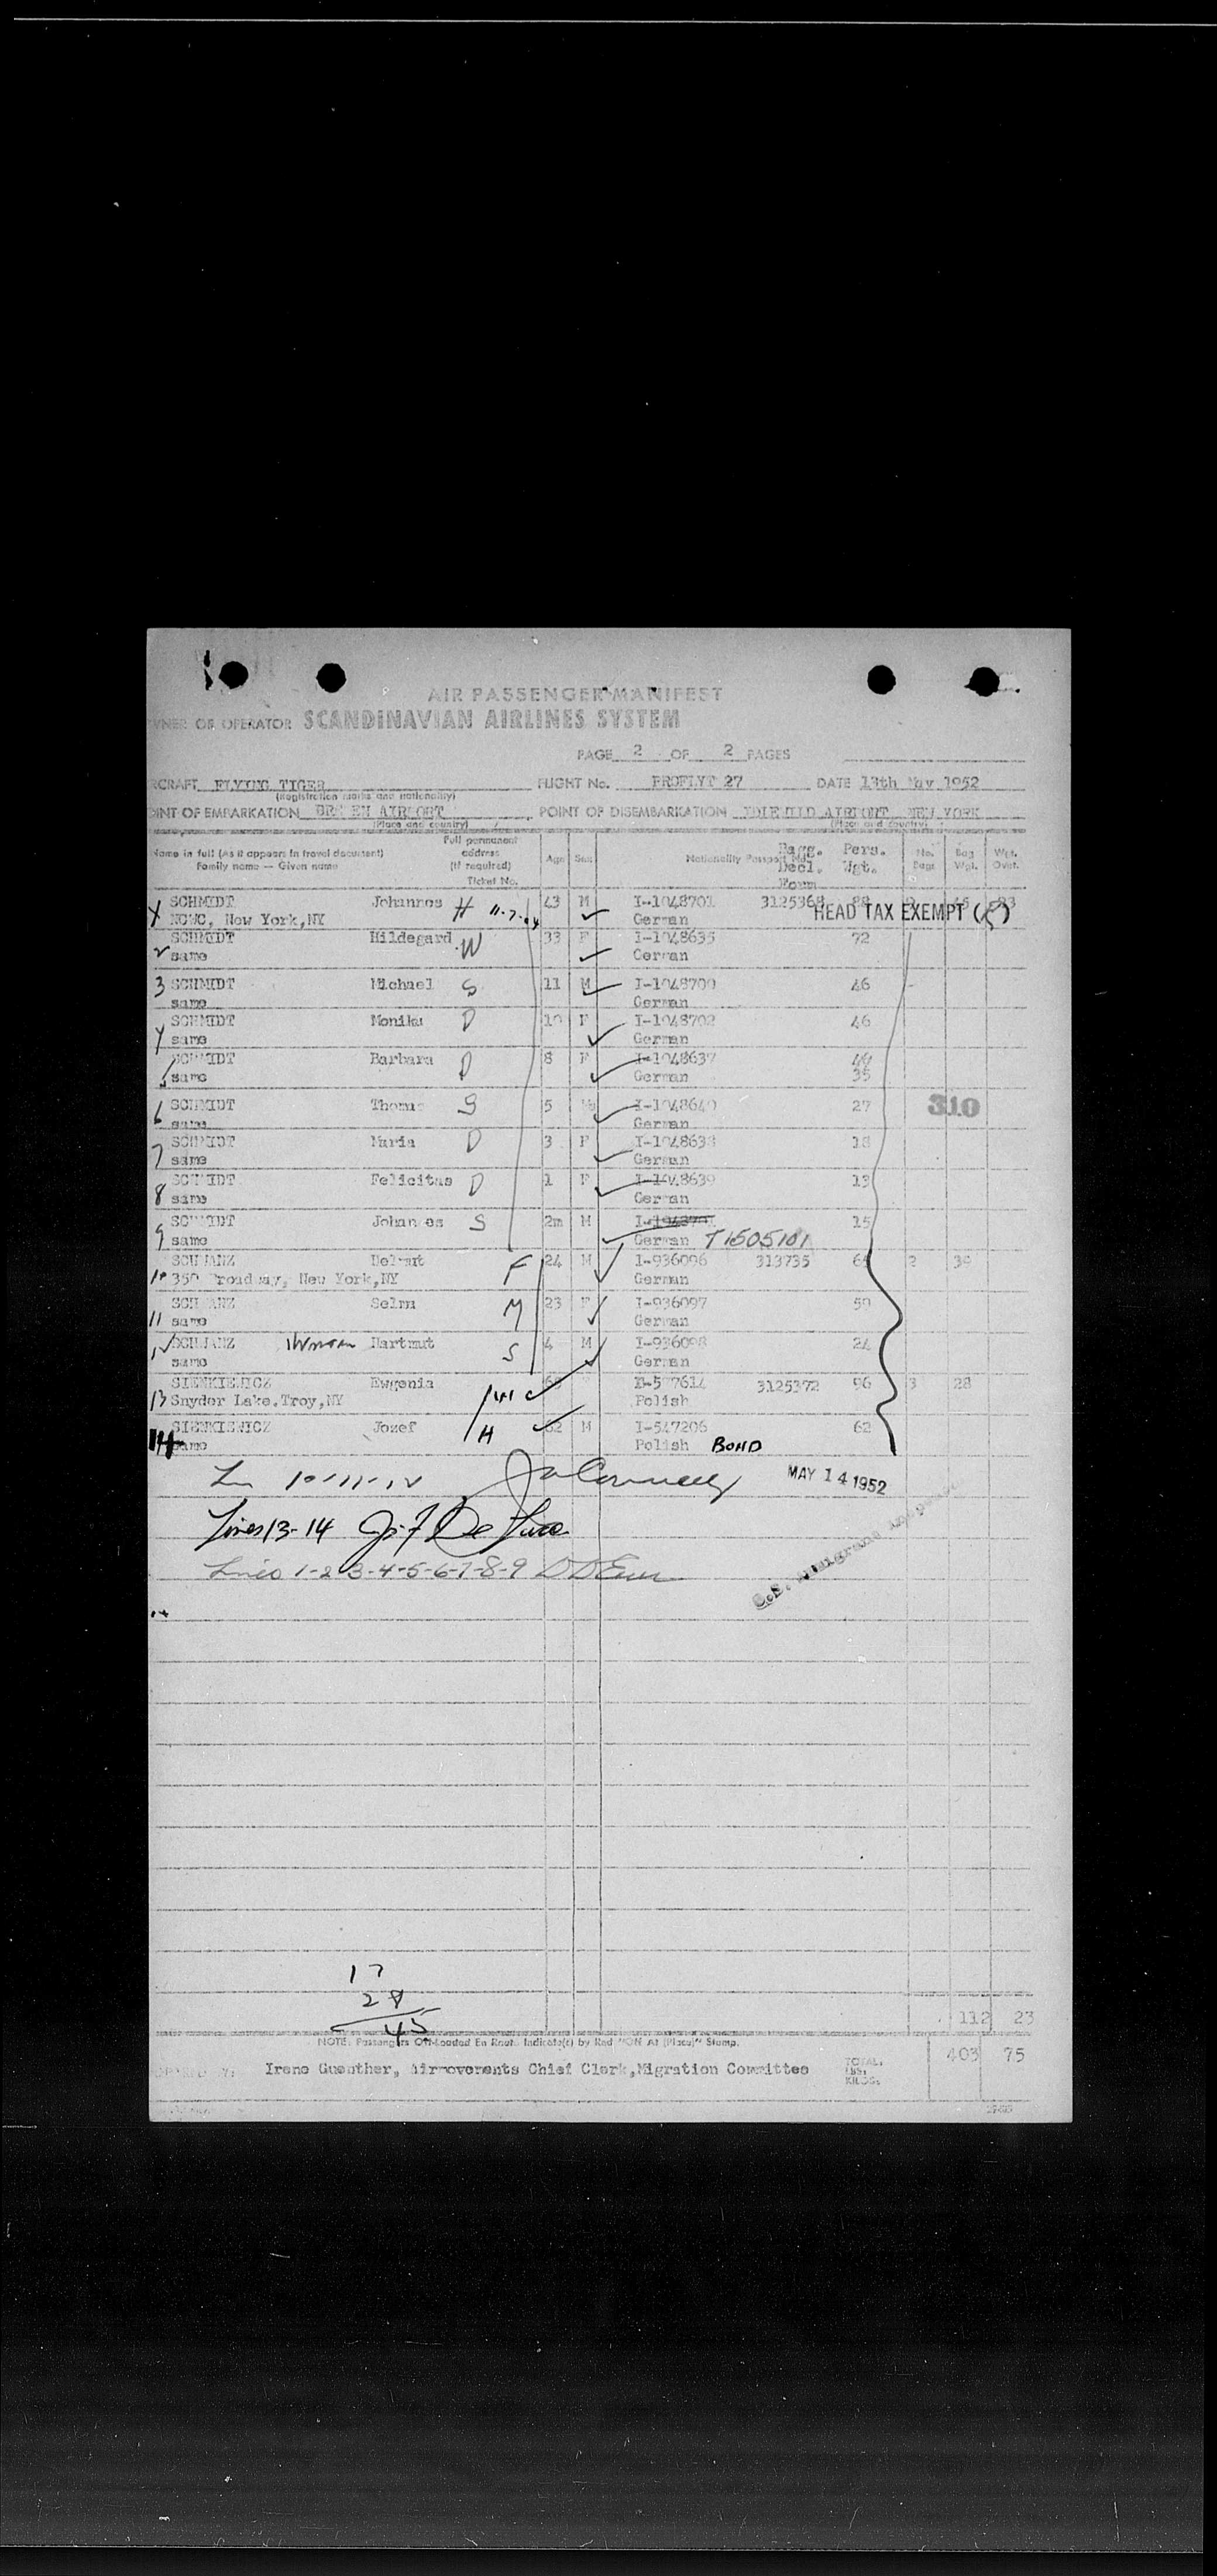 AIR PASSENGER MANIFEST
OWNER OF OPERATOR SCANDINAVIAN AIRLINES SYSTEM
PAGE 2 OF 2 PAGES
AIRCRAFT FLYING TIGER FLIGHT No. PROFLYT 27 DATE 13th May 1952
(Registration marks and nationality)
POINT OF EMBARKATION BREMEN AIRPORT POINT OF DISEMBARKATION IDLEWILD AIRPORT NEW YORK
(Place and country) (Place and country)
Name in full (As it appears in travel document) Family name — Given name Full permanent address (If required) Ticket No. Age Sex Nationality Passport No. Bagg. Decl. Form Pers. Wgt. No. Bags Bag Wgt. Wgt. Ovst.
SCHMIDT Johannes H 43 M I-1048701 3125368 88
NCWC, New York, NY German HEAD TAX EXEMPT (5)
2 SCHMIDT Hildegard W 33 F I-1048635 72
same German
3 SCHMIDT Michael S 11 M I-1048700 46
same German
4 SCHMIDT Monika D 10 F I-1048702 46
same German
SCHMIDT Barbara D 8 F I-1048637
same German 35
6 SCHMIDT Thomas S 5 I-1048640 27 310
same German
7 SCHMIDT Maria D 3 F I-1048638 18
same German
8 SCHMIDT Felicitas D 1 F I-1048639 13
same German
9 SCHMIDT Johannes S 2m M 15
same German T1505101
SCHWANZ F 24 M I-936096 313735 2 39
10 350 Broadway, New York, NY German
SCHWANZ Selma M 23 F I-936097 59
11 same German
SCHWANZ Hartmut S 4 M I-936098 24
same German
SIENKIEWICZ Ewgenia W 3125372 96 3 28
13 Snyder Lake, Troy, NY Polish
SIENKIEWICZ Jozef H 62 M I-547206 62
14 same Polish BOND
10-11-12 MAY 14 1952
Lines 13-14
Lines 1-2-3-4-5-6-7-8-9
U.S. Immigrant Inspector
17
28
45
112 23
NOTE: Passengers Off-Loaded En Route Indicate(r) by Red "ON At (Place)" Stamp.
403 75
Irene Guenther, Airmovements Chief Clerk, Migration Committee TOTAL: LBS: KILOS: